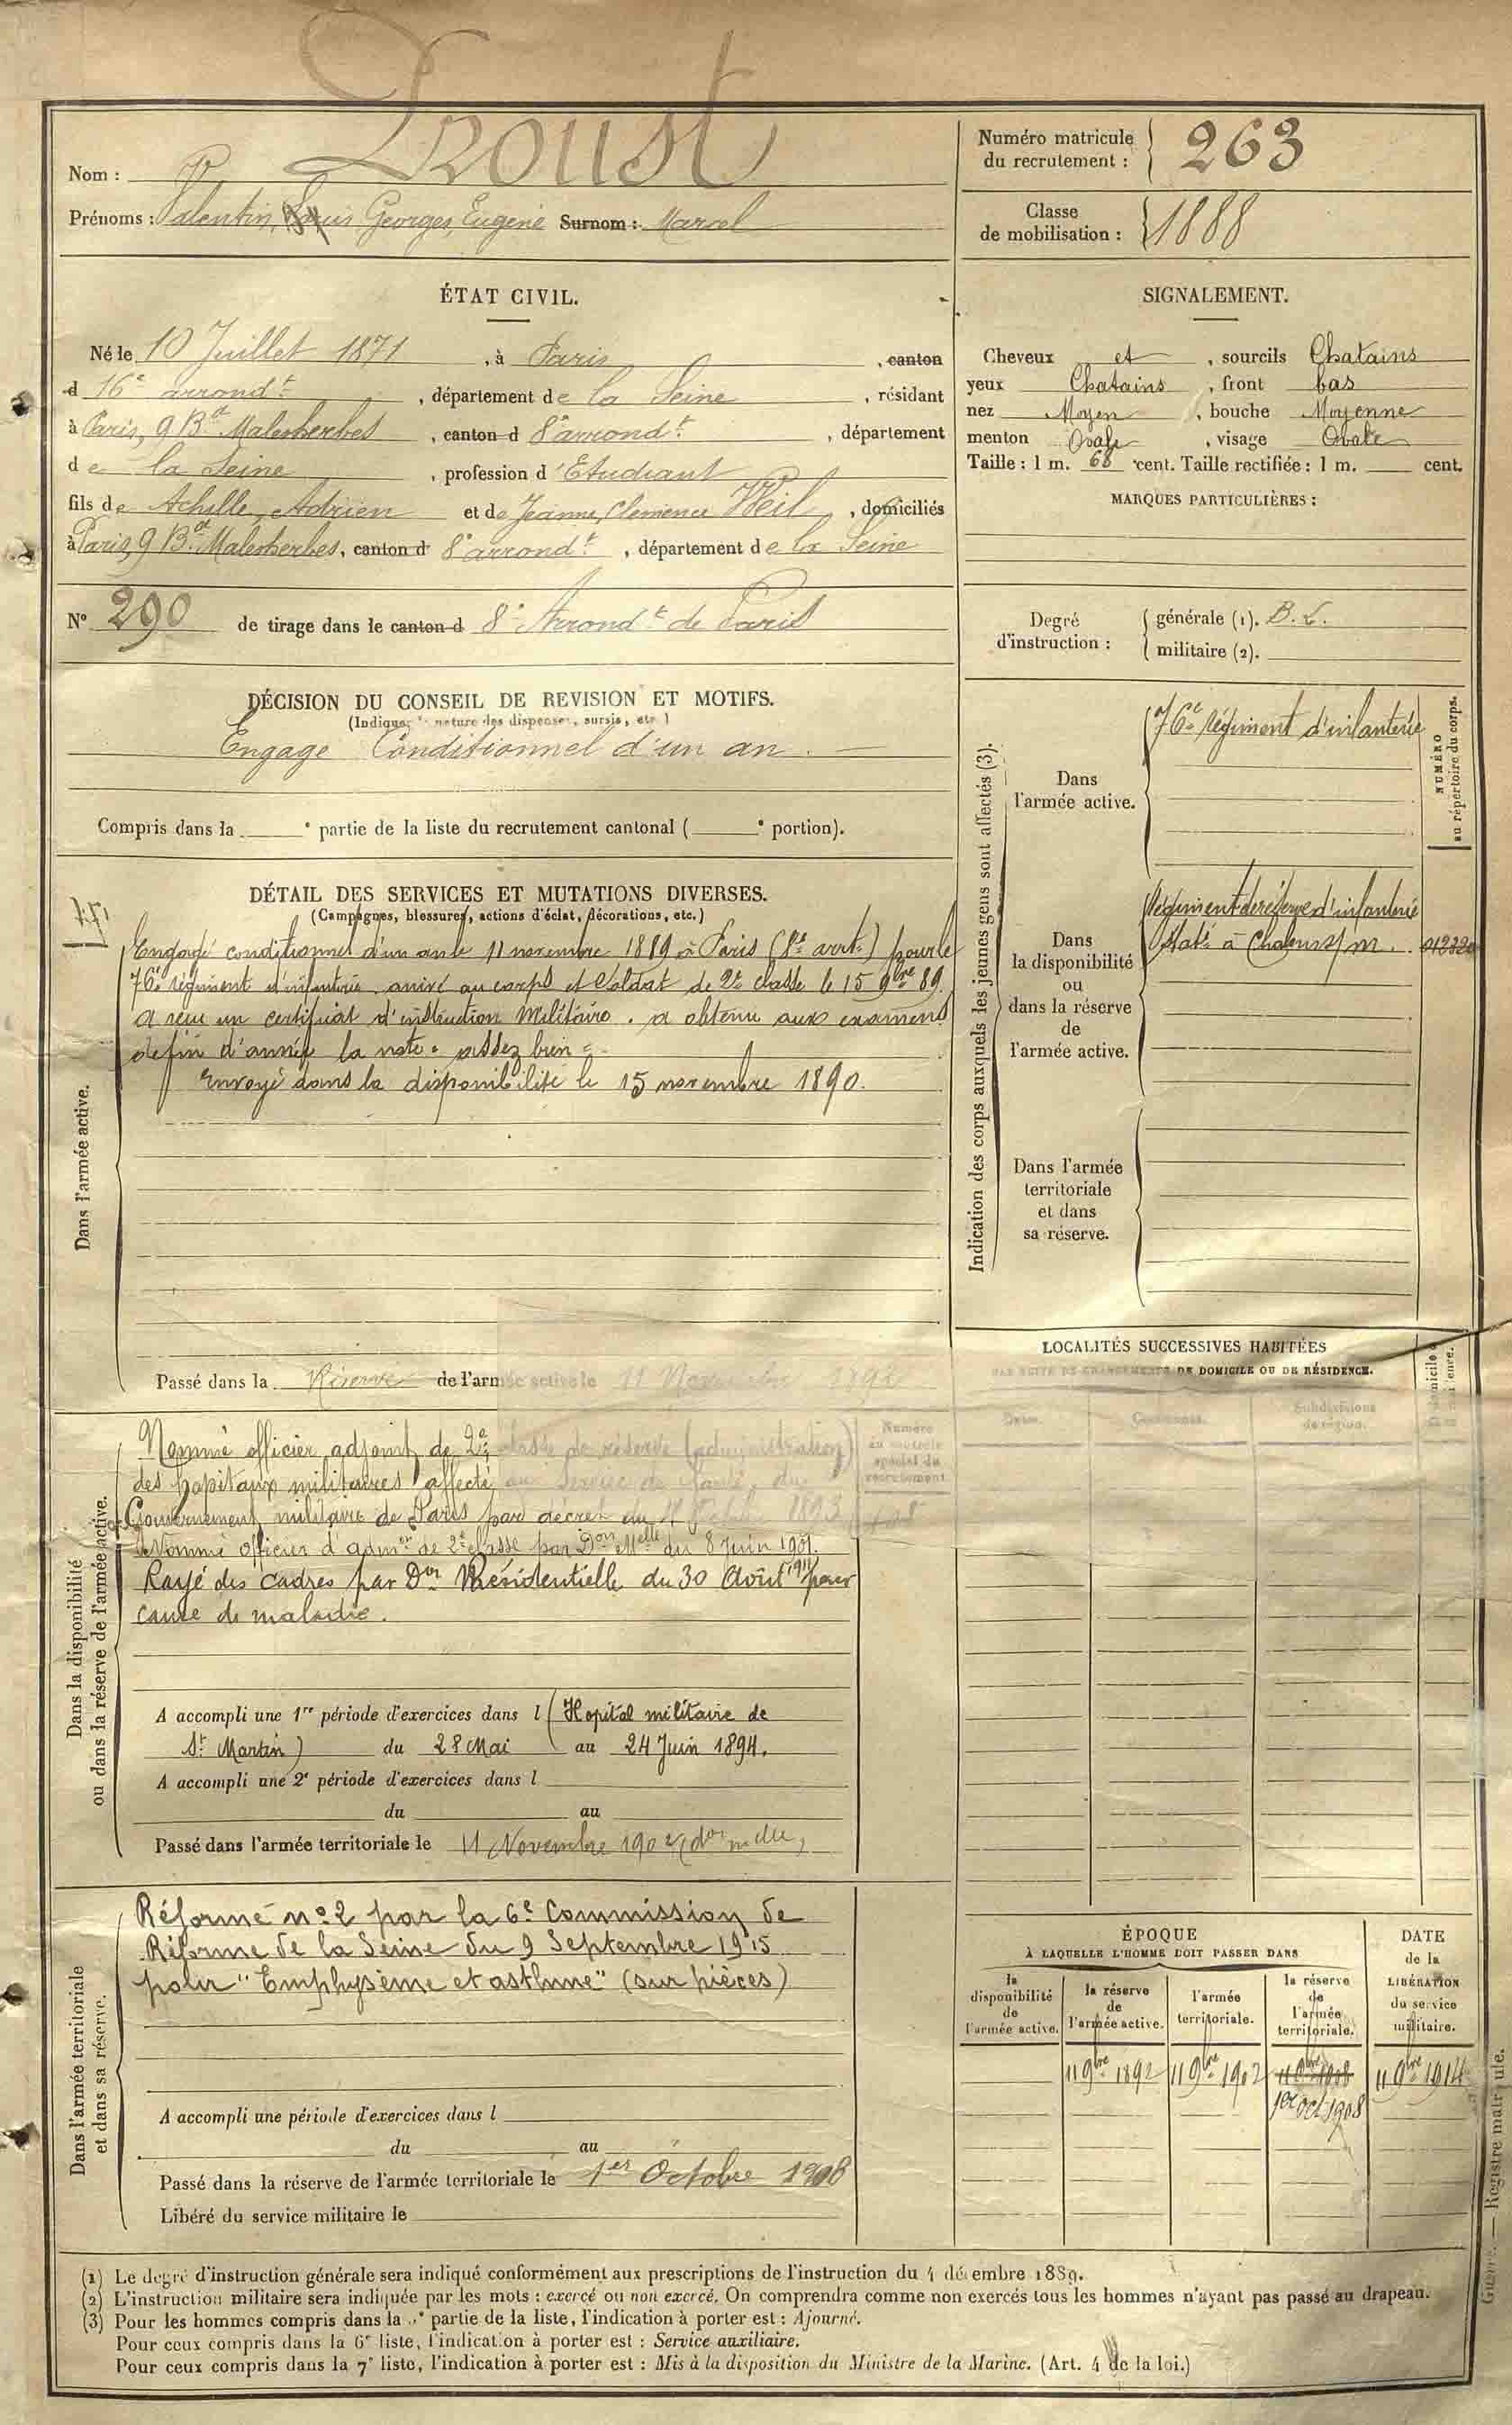 Nom : Proust
Prénoms : Valentin, Louis Georges, Eugène Surnom : Marcel
Numéro matricule du recrutement : 263
Classe de mobilisation : 1888
ÉTAT CIVIL.
Né le 10 Juillet 1871, à Paris, canton
d 16e arrondt, département de la Seine, résidant
à Paris, 9 Bd Malesherbes, canton d 8e arrondt, département
de la Seine, profession d'Etudiant
fils de Achille, Adrien et de Jeanne, Clémence Weil, domiciliés
à Paris, 9 Bd Malesherbes, canton d 8e arrondt, département de la Seine
N° 290 de tirage dans le canton d 8e Arrondt de Paris
SIGNALEMENT.
Cheveux et, sourcils Chatains
yeux Chatains, front bas
nez Moyen, bouche Moyenne
menton Ovale, visage Ovale
Taille : 1 m. 68 cent. Taille rectifiée : 1 m. cent.
MARQUES PARTICULIÈRES :
Degré d'instruction :
générale (1).
militaire (2).
DÉCISION DU CONSEIL DE REVISION ET MOTIFS.
(Indiquer la nature des dispenses, sursis, etc.)
Engagé Conditionnel d'un an.
Compris dans la e partie de la liste du recrutement cantonal ( e portion).
DÉTAIL DES SERVICES ET MUTATIONS DIVERSES.
(Campagnes, blessures, actions d'éclat, décorations, etc.)
Dans l'armée active.
Engagé conditionnel d'un an le 11 novembre 1889 à Paris (8e arrt.) pour le
76e régiment d'infanterie arrivé au corps et Soldat de 2e classe le 15 9bre 89.
A reçu un certificat d'instruction Militaire. a obtenu aux examens
de fin d'année la note " assez bien "
Envoyé dans la disponibilité le 15 novembre 1890.
Passé dans la Réserve de l'armée active le 11 Novembre 1892
Indication des corps auxquels les jeunes gens sont affectés (3).
NUMÉRO au répertoire du corps.
Dans l'armée active.
76e régiment d'infanterie
Dans la disponibilité ou dans la réserve de l'armée active.
Régiment de réserve d'infanterie
Staté à Chalons s/m.
Dans l'armée territoriale et dans sa réserve.
LOCALITÉS SUCCESSIVES HABITÉES
PAR SUITE DE CHANGEMENTS DE DOMICILE OU DE RÉSIDENCE.
Dates. Communes. Subdivisions de région.
Dans la disponibilité ou dans la réserve de l'armée active.
Numéro au contrôle spécial du recrutement
Nommé officier adjoint de 2e classe de réserve (administration)
des hôpitaux militaires affecté au Service de Santé du
Gouvernement militaire de Paris par décret du 1893
Nommé officier d'admon de 2e classe par Don Melle du 8 Juin 1901.
Rayé des cadres par Don Présidentielle du 30 Août 1911 pour
cause de maladie.
A accompli une 1re période d'exercices dans l (Hopital militaire de
St Martin) du 28 Mai au 24 Juin 1894.
A accompli une 2e période d'exercices dans l
du au
Passé dans l'armée territoriale le 11 Novembre 1902
Dans l'armée territoriale et dans sa réserve.
Réformé n°2 par la 6e Commission de
Réforme de la Seine du 9 Septembre 1915
pour "Emphysème et asthme" (sur pièces)
A accompli une période d'exercices dans l
du au
Passé dans la réserve de l'armée territoriale le 1er Octobre 1908
Libéré du service militaire le
ÉPOQUE
À LAQUELLE L'HOMME DOIT PASSER DANS
la disponibilité de l'armée active.
la réserve de l'armée active.
l'armée territoriale.
la réserve de l'armée territoriale.
DATE de la LIBÉRATION du service militaire.
11 9bre 1892 11 9bre 1902 11 9bre 1908 11 9bre 1914
1er oct 1908
(1) Le degré d'instruction générale sera indiqué conformément aux prescriptions de l'instruction du 4 décembre 1889.
(2) L'instruction militaire sera indiquée par les mots : exercé ou non exercé. On comprendra comme non exercés tous les hommes n'ayant pas passé au drapeau.
(3) Pour les hommes compris dans la e partie de la liste, l'indication à porter est : Ajourné.
Pour ceux compris dans la 6e liste, l'indication à porter est : Service auxiliaire.
Pour ceux compris dans la 7e liste, l'indication à porter est : Mis à la disposition du Ministre de la Marine. (Art. 4 de la loi.)
Guerre. — Registre matricule.